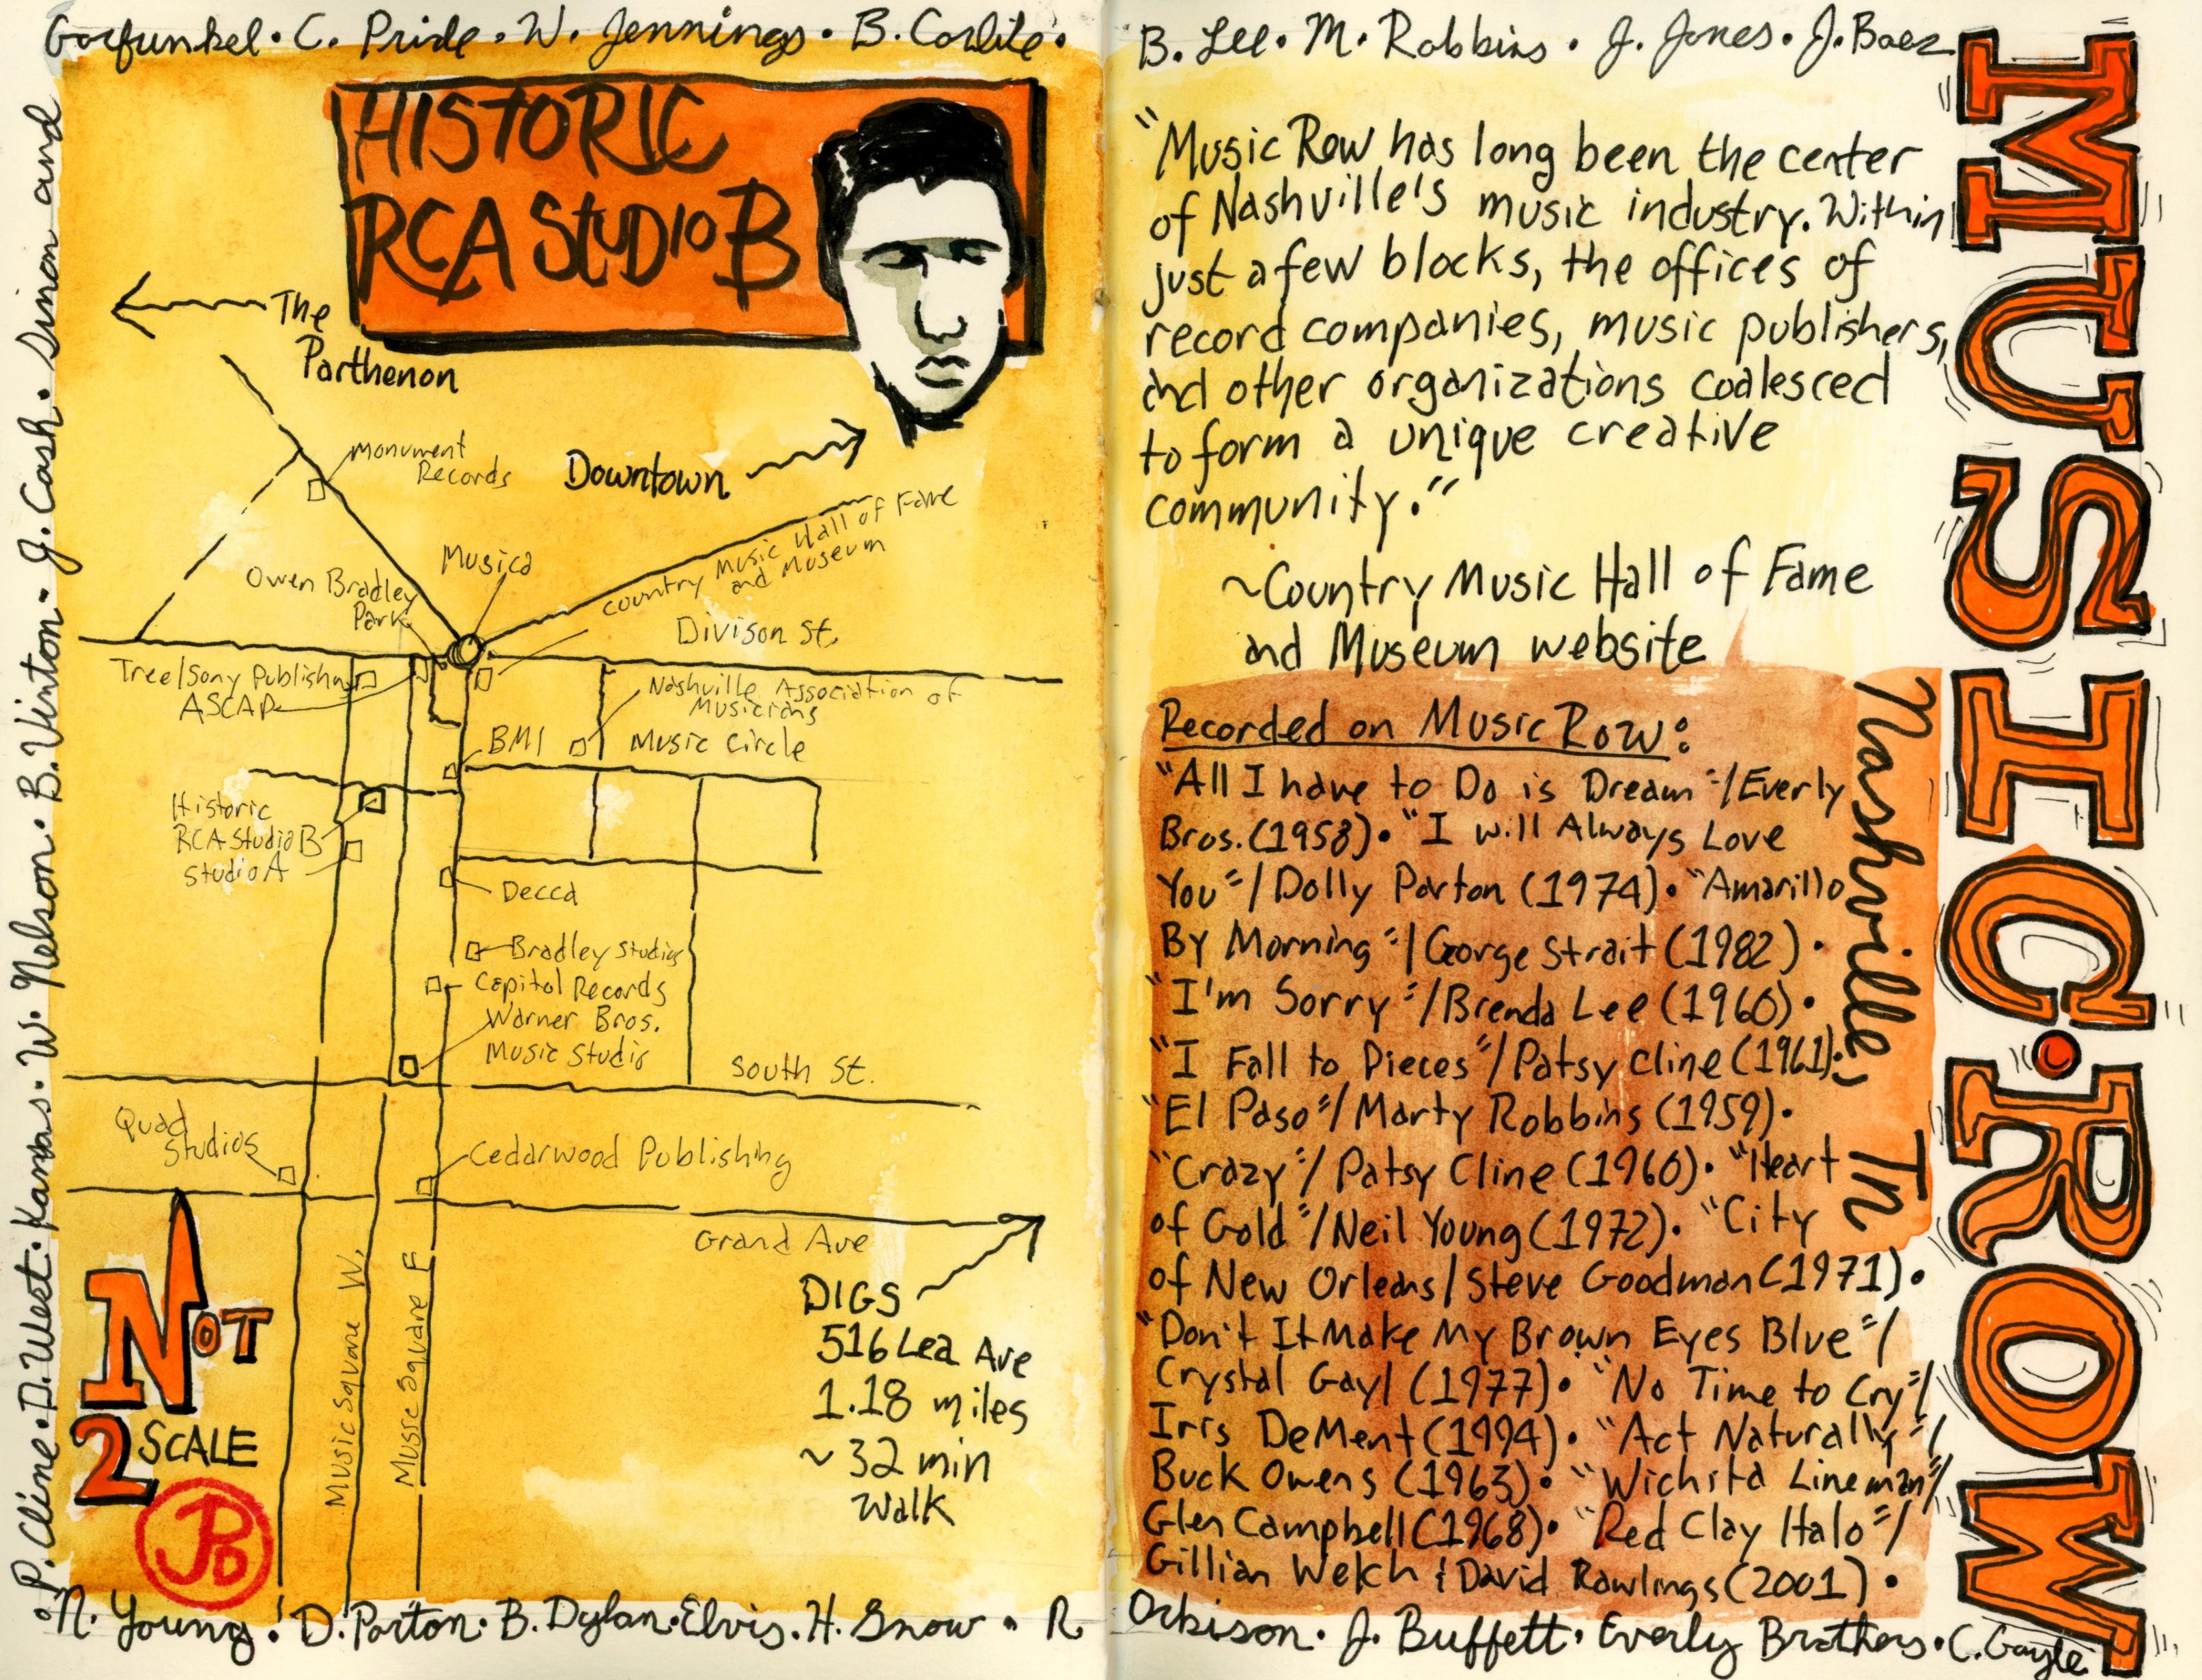 Garfunkel • C. Pride • W. Jennings • B. Carlile •
B. Lee • M. Robbins • J. Jones • J. Baez
P. Cline • D. West • Kansas • W. Nelson • B. Vinton - J. Cash • Simon and
HISTORIC
RCA STUDIO B
The
Parthenon
Monument
Records
Downtown
Country Music Hall of Fame
and Museum
Musica
Owen Bradley
Park
Divison St.
Tree/Sony Publishing
ASCAP
Nashville Association of
Musicians
BMI
Music Circle
Historic
RCA Studio B
Studio A
Decca
Bradley Studios
Capitol Records
Warner Bros.
Music Studio
South St.
Quad
Studios
Cedarwood Publishing
Grand Ave
Music Square W.
Music Square E
NOT
2 SCALE
JPD
DIGS
516 Lea Ave
1.18 miles
~ 32 min
Walk
N. Young • D. Parton • B. Dylan • Elvis • H. Snow • R.
Orbison • J. Buffett • Everly Brothers • C. Gayle
"Music Row has long been the center
of Nashville's music industry. Within
just a few blocks, the offices of
record companies, music publishers,
and other organizations coalesced
to form a unique creative
community."
~Country Music Hall of Fame
and Museum website
Recorded on Music Row:
"All I have to Do is Dream"/Everly
Bros. (1958) • "I will Always Love
You"/Dolly Parton (1974) • "Amarillo
By Morning"/George Strait (1982) •
"I'm Sorry"/Brenda Lee (1960) •
"I Fall to Pieces"/Patsy Cline (1961) •
"El Paso"/Marty Robbins (1959) •
"Crazy"/Patsy Cline (1960) • "Heart
of Gold"/Neil Young (1972) • "City
of New Orleans/Steve Goodman (1971) •
"Don't It Make My Brown Eyes Blue"/
Crystal Gayl (1977) • "No Time to Cry"/
Iris DeMent (1994) • "Act Naturally"/
Buck Owens (1963) • "Wichita Lineman"/
Glen Campbell (1968) • "Red Clay Halo"/
Gillian Welch & David Rawlings (2001) •
Nashville, TN
MUSIC • ROW